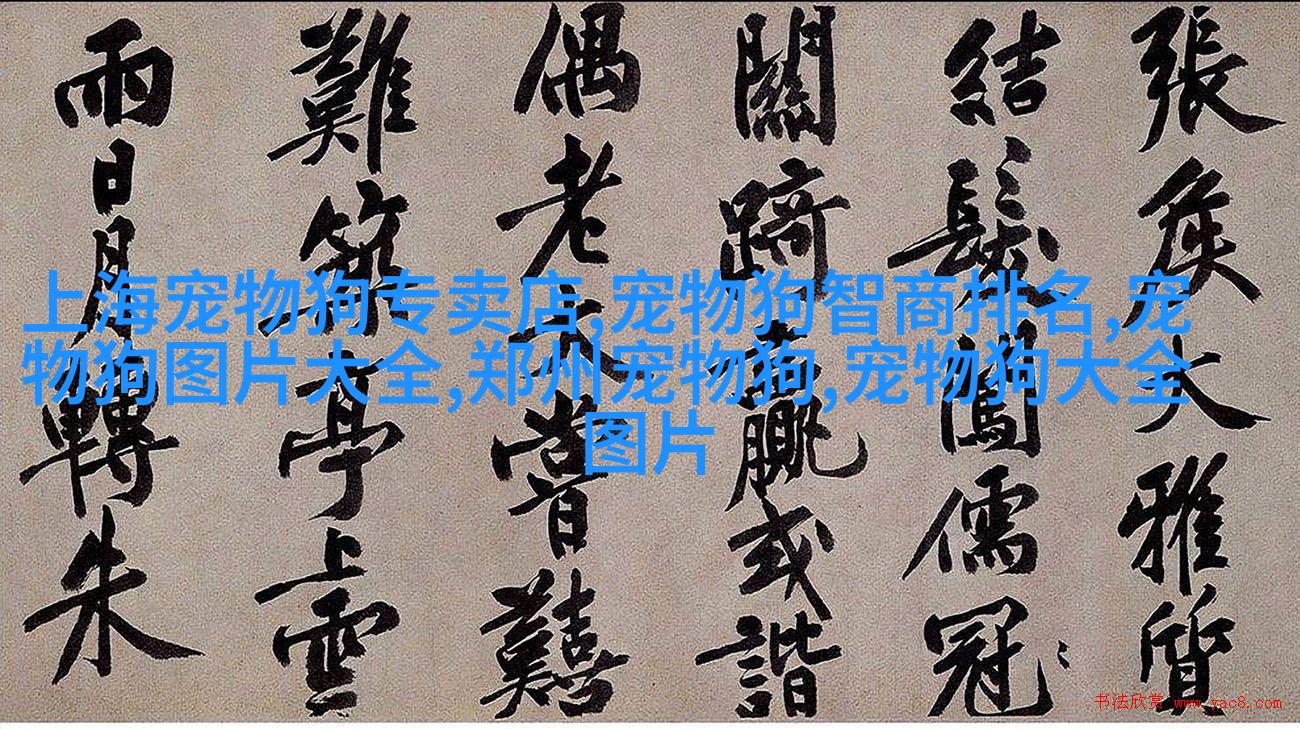 張矦大雅質
結髮闖儒冠
關踦贏或諧
偶老大嘗囏
難築亭上雲
雨日月轉朱
上海宠物狗专卖店,宠物狗智商排名,宠
物狗图片大全,郑州宠物狗,宠物狗大全
图片
书法欣赏 www.yac8.com